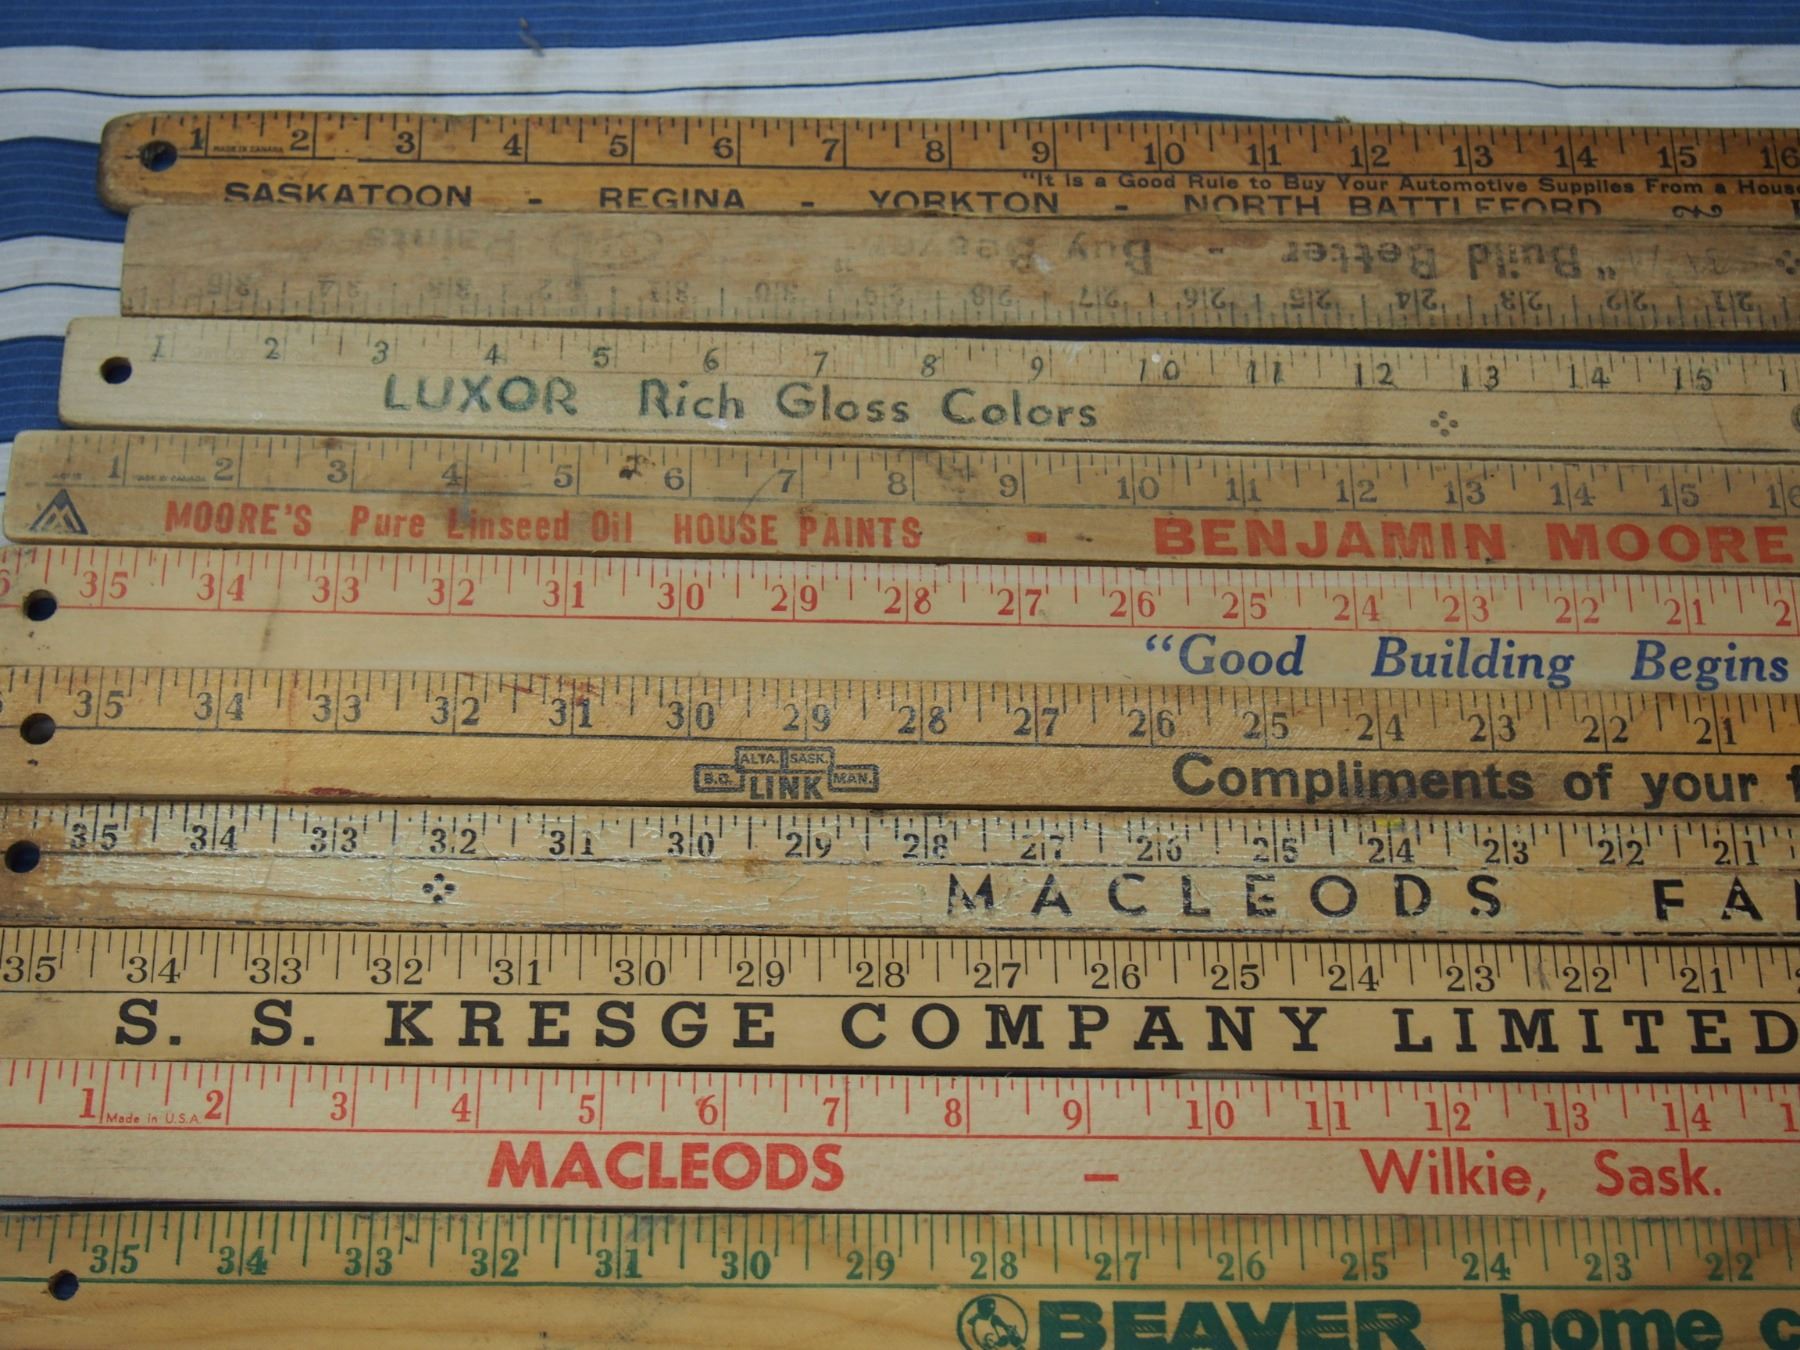 1 2 3 4 5 6 7 8 9 10 11 12 13 14 15 16
MADE IN CANADA
"It is a Good Rule to Buy Your Automotive Supplies From a House
SASKATOON - REGINA - YORKTON - NORTH BATTLEFORD
"Build Better - Buy Beaver"
21 22 23 24 25 26 27 28 29 30 31 32 33 34 35
1 2 3 4 5 6 7 8 9 10 11 12 13 14 15
LUXOR Rich Gloss Colors
1 2 3 4 5 6 7 8 9 10 11 12 13 14 15 16
MADE IN CANADA
M MOORE'S Pure Linseed Oil HOUSE PAINTS - BENJAMIN MOORE
35 34 33 32 31 30 29 28 27 26 25 24 23 22 21
"Good Building Begins
35 34 33 32 31 30 29 28 27 26 25 24 23 22 21
ALTA. SASK.
B.C. LINK MAN.
Compliments of your
35 34 33 32 31 30 29 28 27 26 25 24 23 22 21
MACLEODS FA
35 34 33 32 31 30 29 28 27 26 25 24 23 22 21
S. S. KRESGE COMPANY LIMITED
1 2 3 4 5 6 7 8 9 10 11 12 13 14
Made in U.S.A.
MACLEODS - Wilkie, Sask.
35 34 33 32 31 30 29 28 27 26 25 24 23 22
BEAVER home c